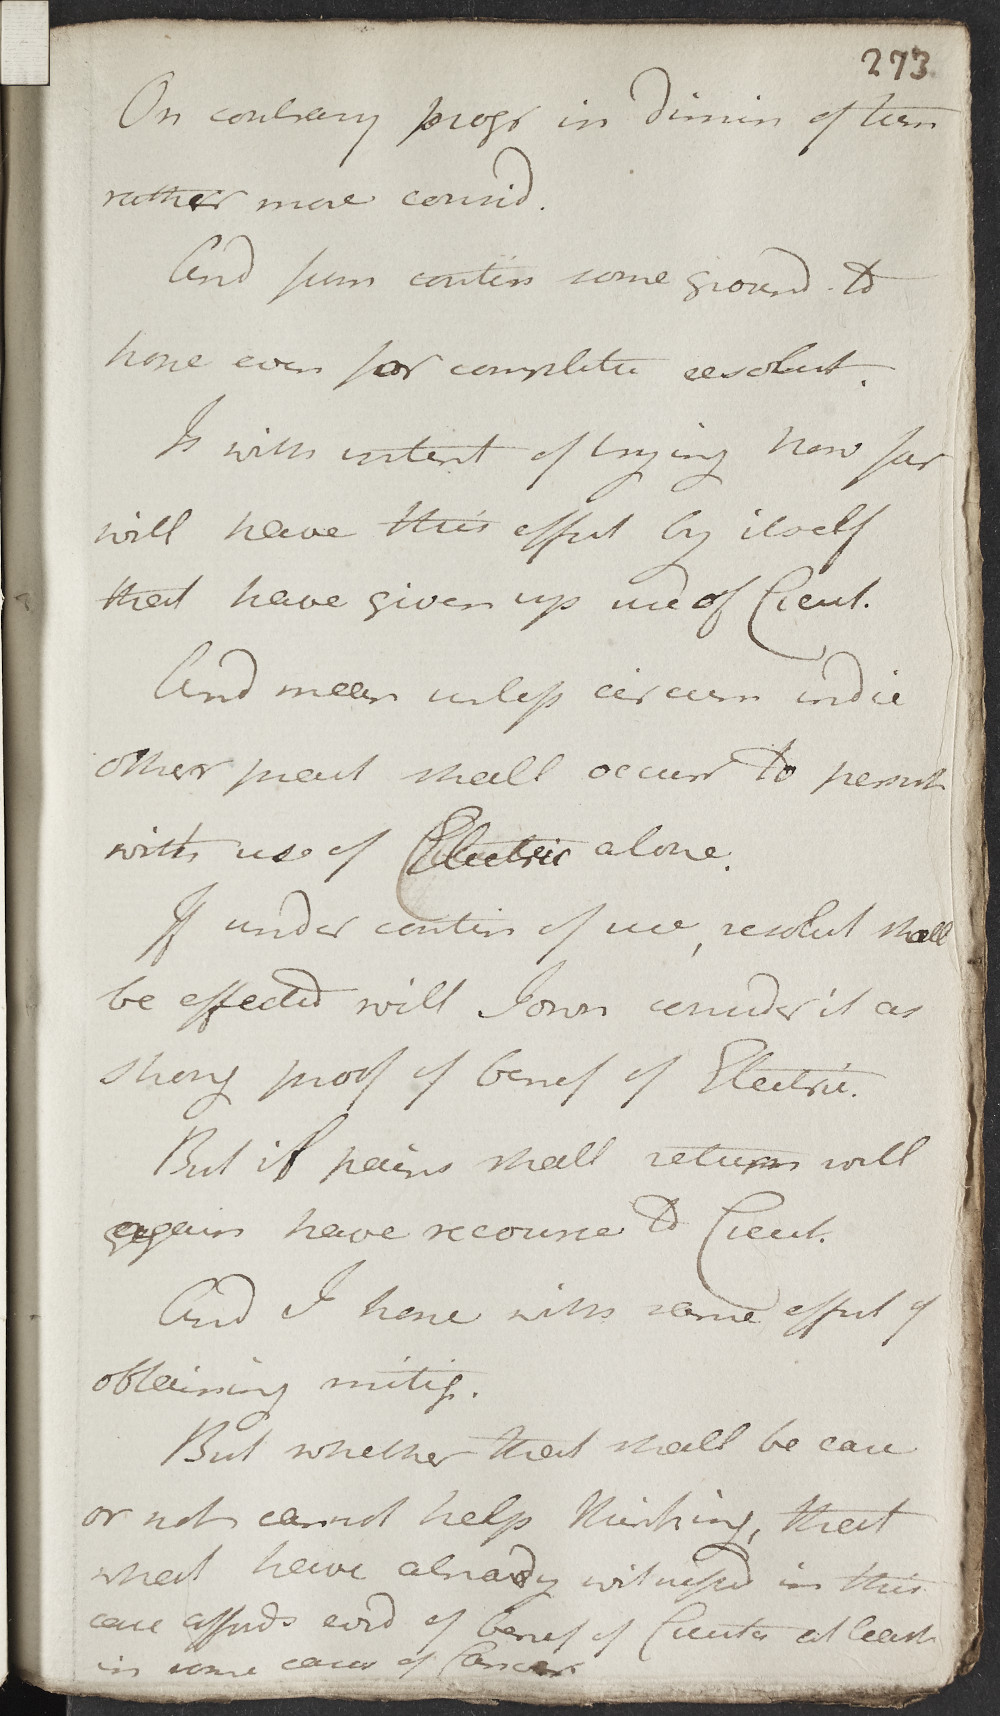 273
On contrary progr in dimin of tum
rather more consid.
And from contin some ground to
hope even for complete resolut.
Is with intent of trying how far
will have this effect by itself
that have given up use of Cicut.
And mean unless circum indic
other pract shall occurr to persist
with use of Electric alone.
If under contin of use, resolut shall
be effected will I own consider it as
strong proof of benef of Electric.
But if pains shall return will
again have recourse to Cicut.
And I hope with same effect of
obtaining mitig.
But whether that shall be case
or not cannot help thinking, that
what have already witnessed in this
case affords evid of benef of Cicuta at least
in some cases of Cancer